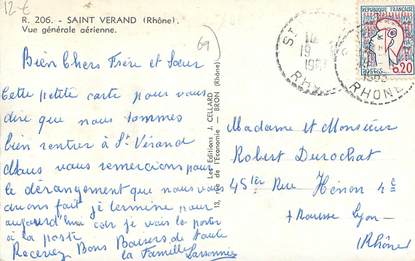 12 €
R. 206. - SAINT VERAND (Rhône).
Vue générale aérienne.
69
Bien Chers Frère et Sœur
Cette petite carte pour vous
dire que nous sommes
bien rentrer à St Vérand
Nous vous remercions pour
le dérangement que nous vous
avons fait je termine pour
aujourd'hui car je vais le porter
à la poste
Recevez Bons Baisers de toute
la Famille
Les Editions J. CELLARD
13, rue de l'Economie - BRON (Rhône)
ST
19
RHÔNE
REPUBLIQUE FRANCAISE
POSTES
0,20
Madame et Monsieur
Robert Durochat
45 ter Rue Hénon 4e
Lyon
(Rhône)